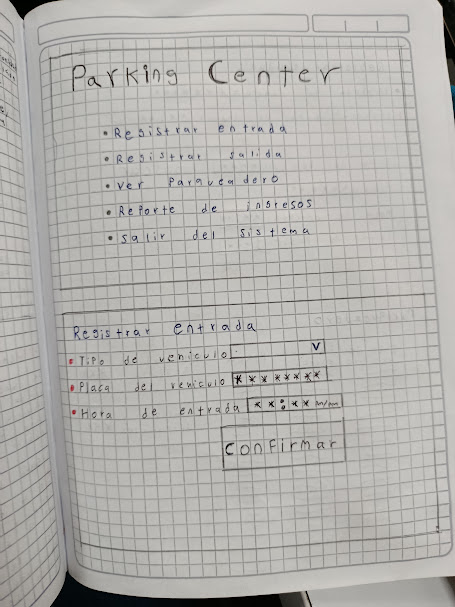 Parking Center
• Registrar entrada
• Registrar salida
• ver Paraueadero
• Reporte de ingresos
• salir del sistema
Registrar entrada
• Tipo de vehiculo: v
• Placa del vehiculo ********
• Hora de entrada **:**
Confirmar